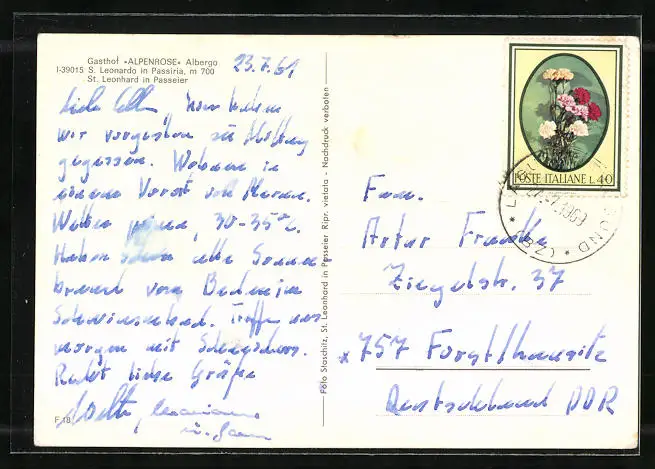 Gasthof «ALPENROSE» Albergo
I-39015 S. Leonardo in Passiria, m 700
St. Leonhard in Passeier
23.7.69
Liebe haben
wir vorgestern zu Mittag
gegessen. Wohnen in
einem Vorort von Meran.
Wetter prima, 30-35°C.
Haben schon alle Sonnen
brand vom Baden im
Schwimmbad. Treffen uns
morgen mit
Recht liebe Grüße
F 18
Foto Staschitz, St. Leonhard in Passeier Ripr. vietata - Nachdruck verboten
POSTE ITALIANE L.40
1969
Fam.
Artur Franke
Ziegelstr. 37
* 757 Forst/Lausitz
Deutschland DDR